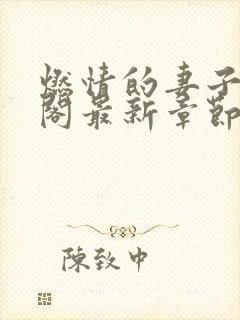 燃情的妻子
閣最新章節
陳致中